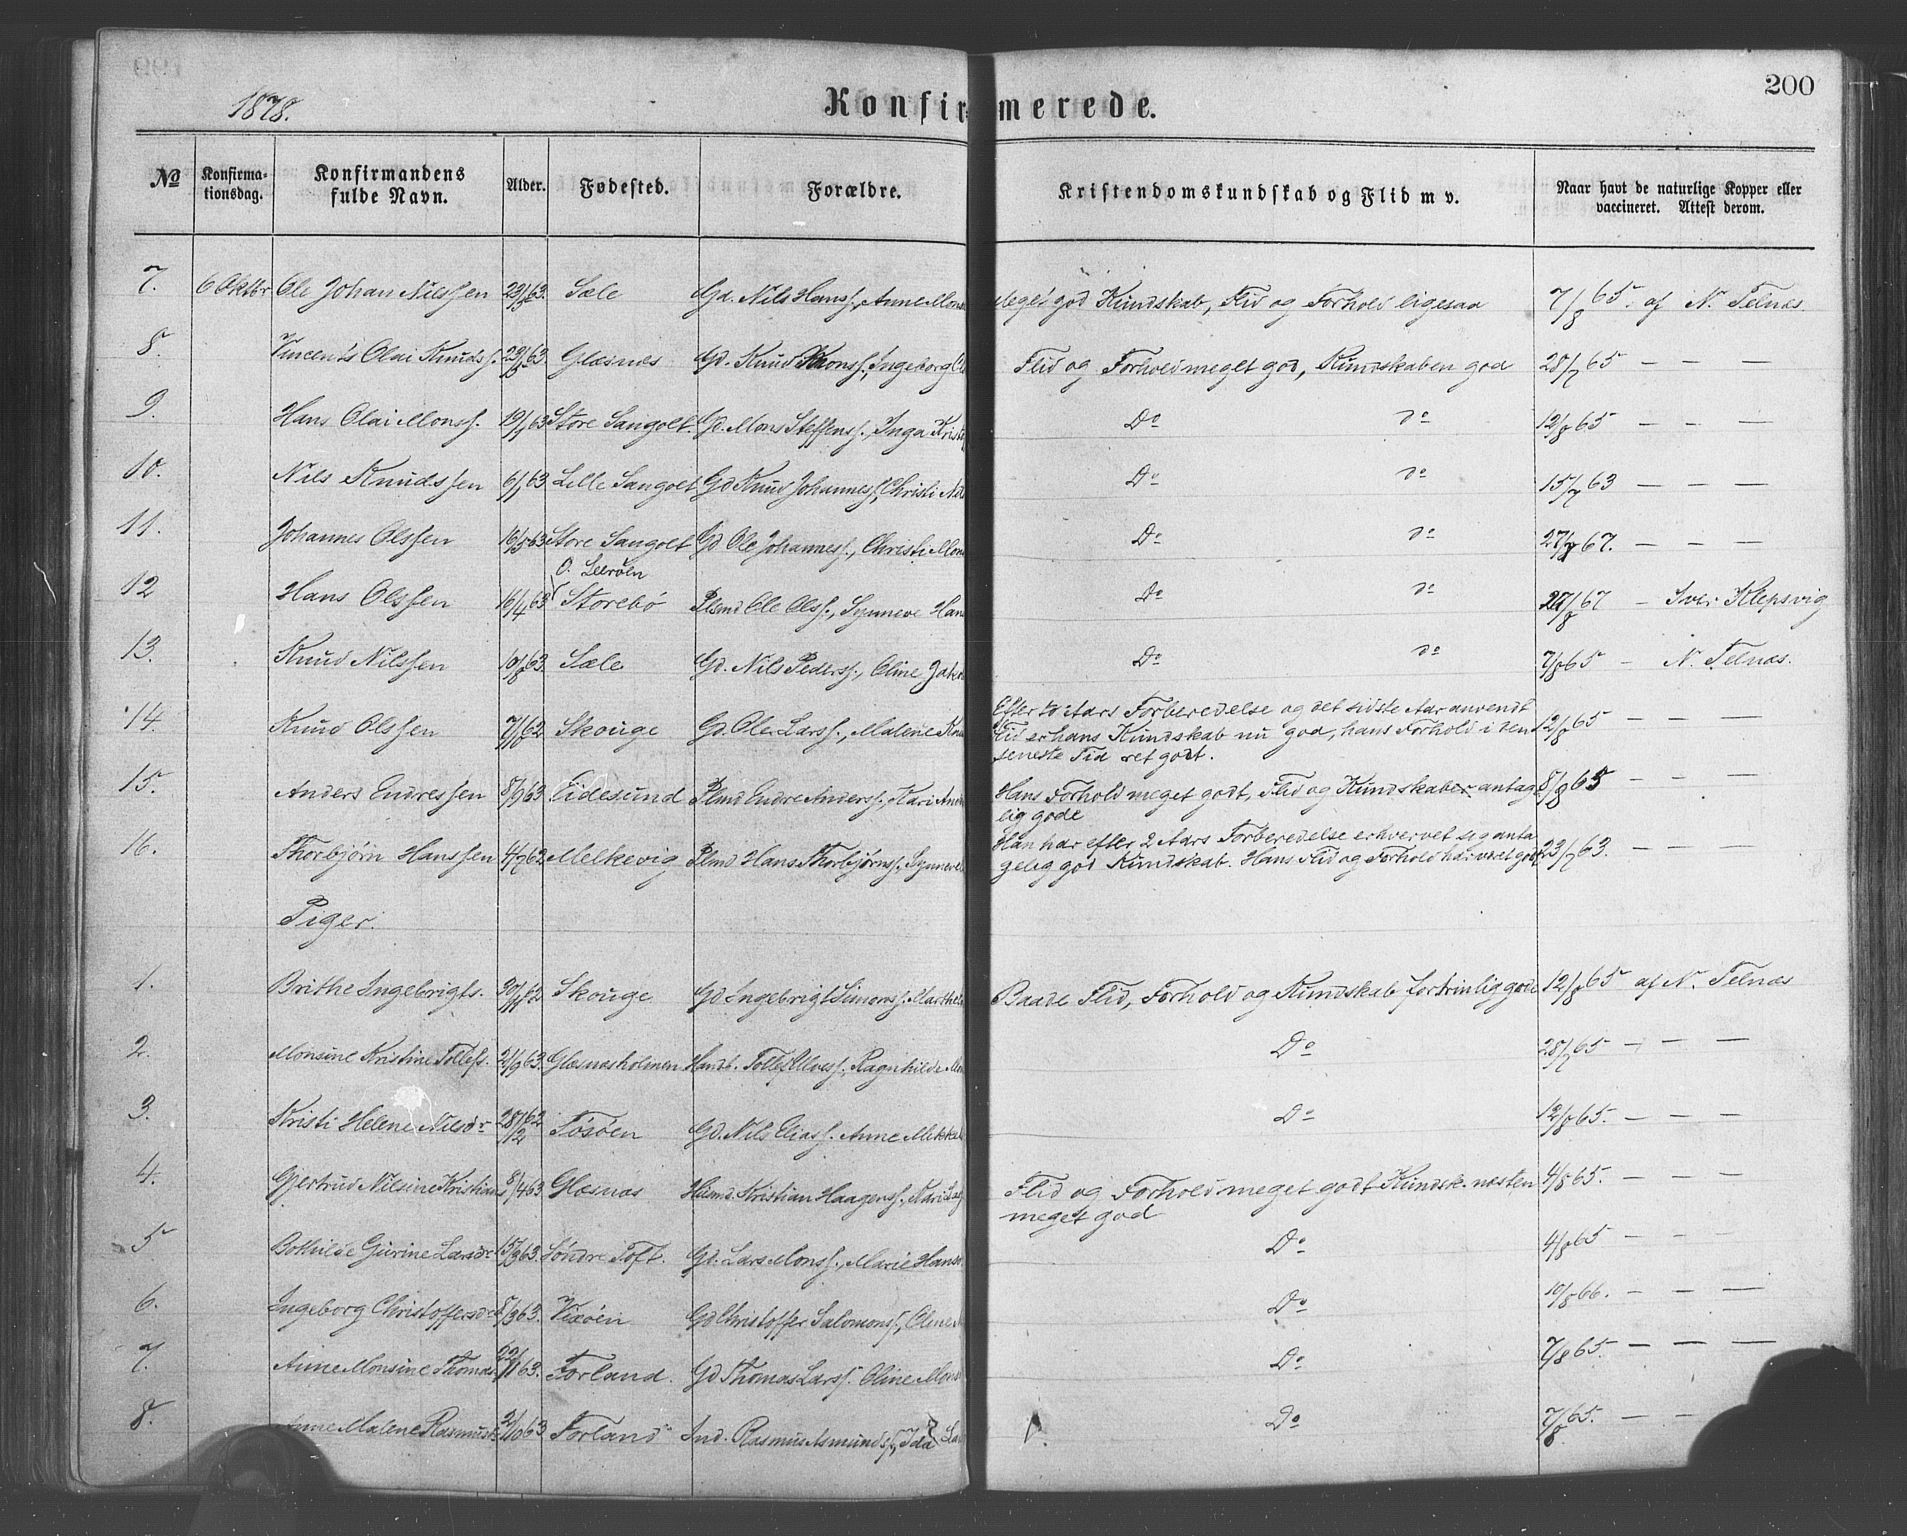 200
1878.
Konfirmerede.
No Konfirma-tionsdag. Konfirmandens fulde Navn. Alder. Fødested. Forældre. Kristendomskundskab og Flid m v. Naar havt de naturlige Kopper eller vaccineret. Attest derom.
7. 6 Oktbr Ole Johan Nilssen 63. Sæle Gd. Nils Hanss., Anne Mons meget god Kundskab, Flid og Forhold ligesaa 7/8 65. af N. Telnæs.
8. Vincents Olai Knudss. 63. Glæsnæs Gd. Knud Monss., Ingeborg Flid og Forhold meget god, Kundskaben god 28/7 65 — — —
9. Hans Olai Monss. 63 Store Sangolt. Gd. Mons Steffenss., Inga Krist Do do 12/8 65 — — —
10. Nils Knudssen 6/1 63 Lille Sangolt Gd Knud Johanness., Christi Nils Do do 15/7 63 — — —
11. Johannes Olssen 16/5 63 Store Sangolt Gd Ole Johanness., Christi Mons Do do 67. — — —
O. Leerøen
12 Hans Olssen 16/4 63 Storebø Plmd Ole Olss., Synneve Hans Do do 67 — Iver Klepsvig
13. Knud Nilssen 10/8 63. Sæle Gd. Nils Pederss., Oline Jakob Do do 7/8 65 — N. Telnæs.
14. Knud Olssen 62 Skouge Gd. Ole Larss., Malene Knu Efter to Aars Forberedelse og det sidste Aar anvendt 12/8 65 — — —
Flid er hans Kundskab nu god, hans Forhold i den
seneste Tid ret godt.
15. Anders Endressen 8/9 63 Eidesund Plmd Endre Anderss., Kari And Hans Forhold meget godt, Flid og Kundskaber antage 8/8 65 — — —
lig gode
16. Thorbjørn Hanssen 4/7 62 Melkevig Plmd Hans Thorbjørns., Synneve Han har efter 2 Aars Forberedelse erhvervet sig anta 23/7 63. — — —
gelig god Kundskab. Hans Flid og Forhold har været godt
Piger.
1. Brithe Ingebrigts. 30/11 62 Skouge Gd Ingebrigt Simons., Marthe Baade Flid, Forhold og Kundskab fortrinlig gode 12/8 65 af N. Telnæs
2. Monsine Kristine Tollefs. 2/9 63. Glæsnæsholmen Husmd. Tollef Ulvess., Ragnhilde Mon Do 28/7 65 — — —
3. Kristi Helene Nilsdr 28/12 62 Tösöen Gd. Nils Eliass. Anne Mikkels Do 12/8 65. — — —
4. Gjertrud Nilsine Kristians 8/4 63 Glæsnæs Husmd. Kristian Haagenss., Kari Flid og Forhold meget godt Kundsk. næsten 4/8 65. — — —
meget god
5 Bothilde Gurine Larsdr 15/3 63. Söndre Toft. Gd. Lars Monss., Marie Hans Do 4/8 65 — — —
6. Ingeborg Christoffersdr 8/3 63. Vixöen Gd Christoffer Salomonss., Oline Do 10/8 66. — — —
7. Anne Monsine Thomas 22/11 63. Forland. Gd Thomas Larss. Oline Mons Do 7/8 65. — — —
8. Anne Malene Rasmusdr 2/10 63 Forland Ind. Rasmus Asmundss., Ida La Do 7/8 65. — — —